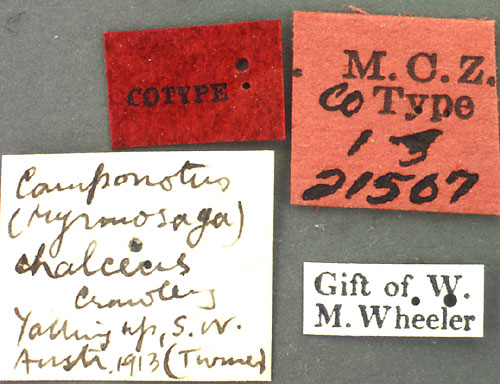 COTYPE
M.C.Z.
Co Type
21567
Camponotus
(Myrmosaga)
chalceus
Crawley
Yallingup, S.W.
Austr. 1913 (Turner)
Gift of W.
M. Wheeler